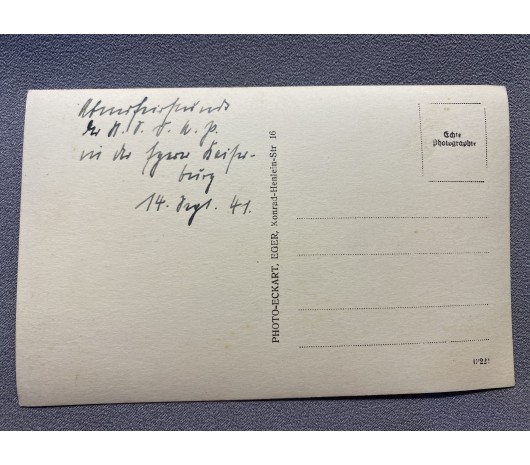 Abendfeierstunde
der N. S. D. A. P.
in der Egerer Kaiser-
burg
14. Sept. 41.
PHOTO-ECKART, EGER, Konrad-Henlein-Str 16
Echte
Photographie